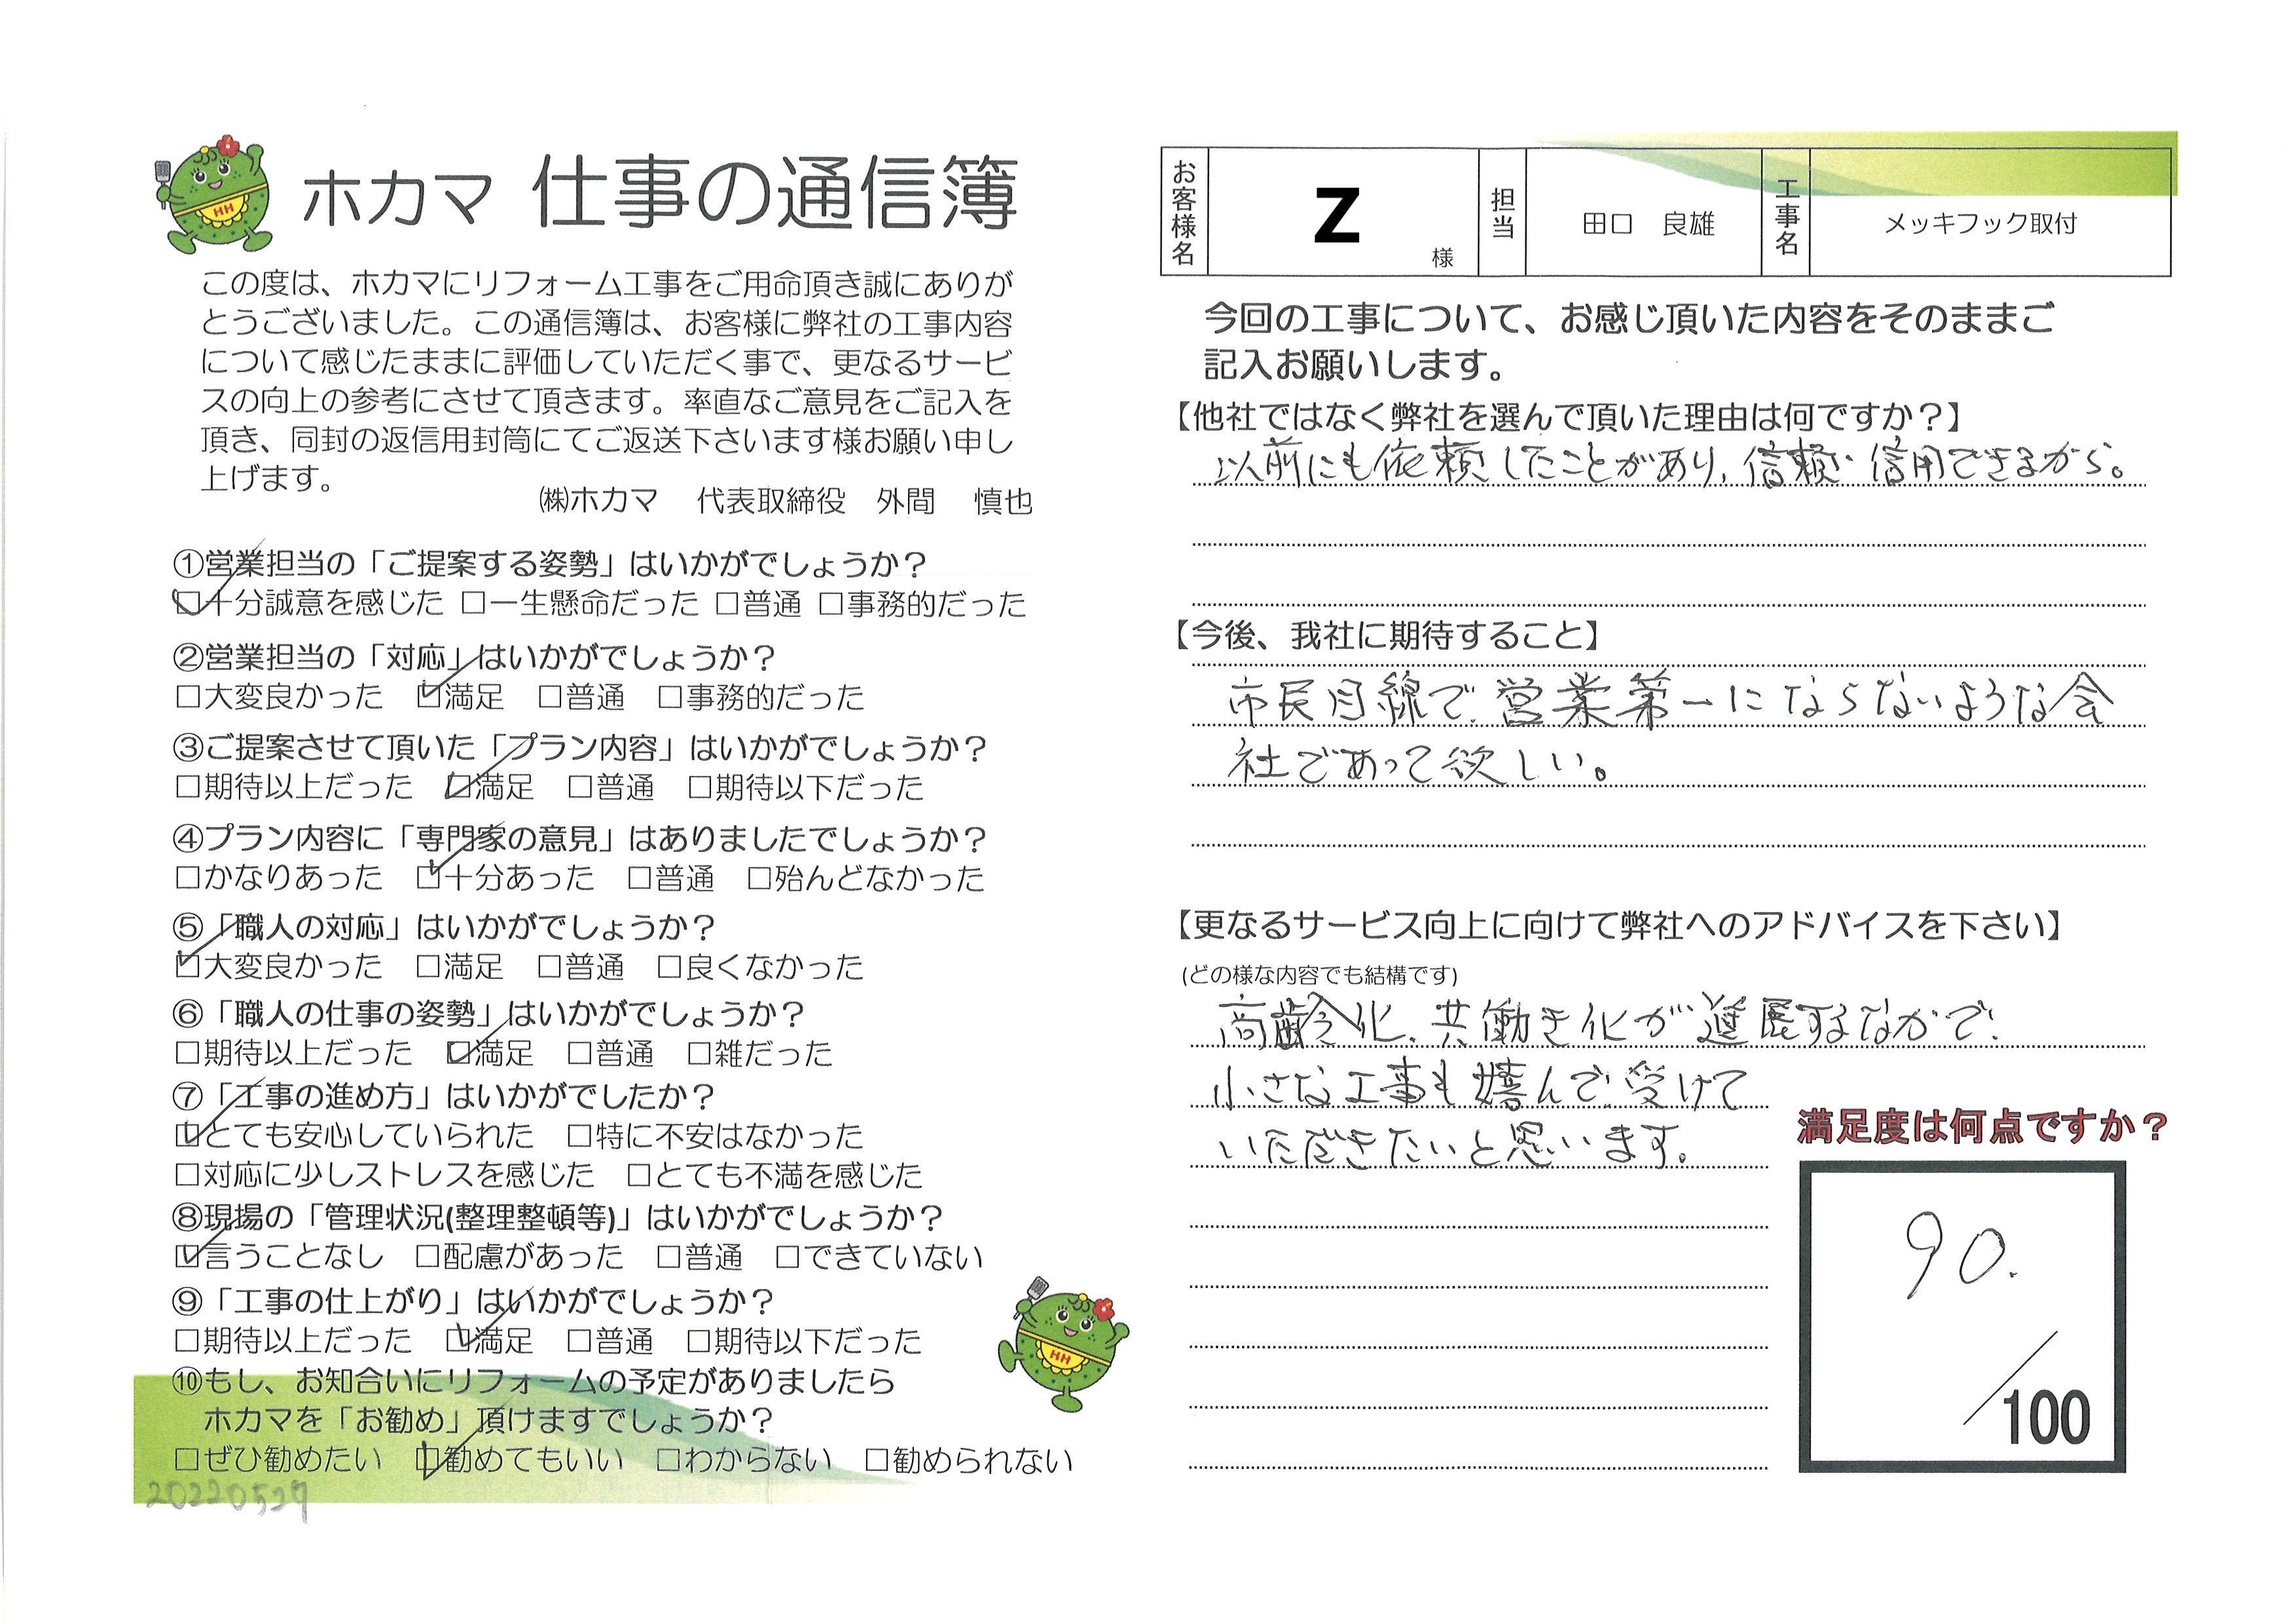 ホカマ 仕事の通信簿
この度は、ホカマにリフォーム工事をご用命頂き誠にありが
とうございました。この通信簿は、お客様に弊社の工事内容
について感じたままに評価していただく事で、更なるサービ
スの向上の参考にさせて頂きます。率直なご意見をご記入を
頂き、同封の返信用封筒にてご返送下さいます様お願い申し
上げます。
㈱ホカマ 代表取締役 外間 慎也
①営業担当の「ご提案する姿勢」はいかがでしょうか？
☑十分誠意を感じた □一生懸命だった □普通 □事務的だった
②営業担当の「対応」はいかがでしょうか？
□大変良かった ☑満足 □普通 □事務的だった
③ご提案させて頂いた「プラン内容」はいかがでしょうか？
□期待以上だった ☑満足 □普通 □期待以下だった
④プラン内容に「専門家の意見」はありましたでしょうか？
□かなりあった ☑十分あった □普通 □殆んどなかった
⑤「職人の対応」はいかがでしょうか？
☑大変良かった □満足 □普通 □良くなかった
⑥「職人の仕事の姿勢」はいかがでしょうか？
□期待以上だった ☑満足 □普通 □雑だった
⑦「工事の進め方」はいかがでしたか？
☑とても安心していられた □特に不安はなかった
□対応に少しストレスを感じた □とても不満を感じた
⑧現場の「管理状況(整理整頓等)」はいかがでしょうか？
☑言うことなし □配慮があった □普通 □できていない
⑨「工事の仕上がり」はいかがでしょうか？
□期待以上だった ☑満足 □普通 □期待以下だった
⑩もし、お知合いにリフォームの予定がありましたら
ホカマを「お勧め」頂けますでしょうか？
□ぜひ勧めたい ☑勧めてもいい □わからない □勧められない
20220527
HH
HH
お客様名 Z 様 担当 田口 良雄 工事名 メッキフック取付
今回の工事について、お感じ頂いた内容をそのままご
記入お願いします。
【他社ではなく弊社を選んで頂いた理由は何ですか？】
以前にも依頼したことがあり、信頼・信用できるから。
【今後、我社に期待すること】
市民目線で、営業第一にならないような会
社であって欲しい。
【更なるサービス向上に向けて弊社へのアドバイスを下さい】
(どの様な内容でも結構です)
高齢化、共働き化が進展するなかで、
小さな工事も嬉んで受けて
いただきたいと思います。
満足度は何点ですか？
90.
/100